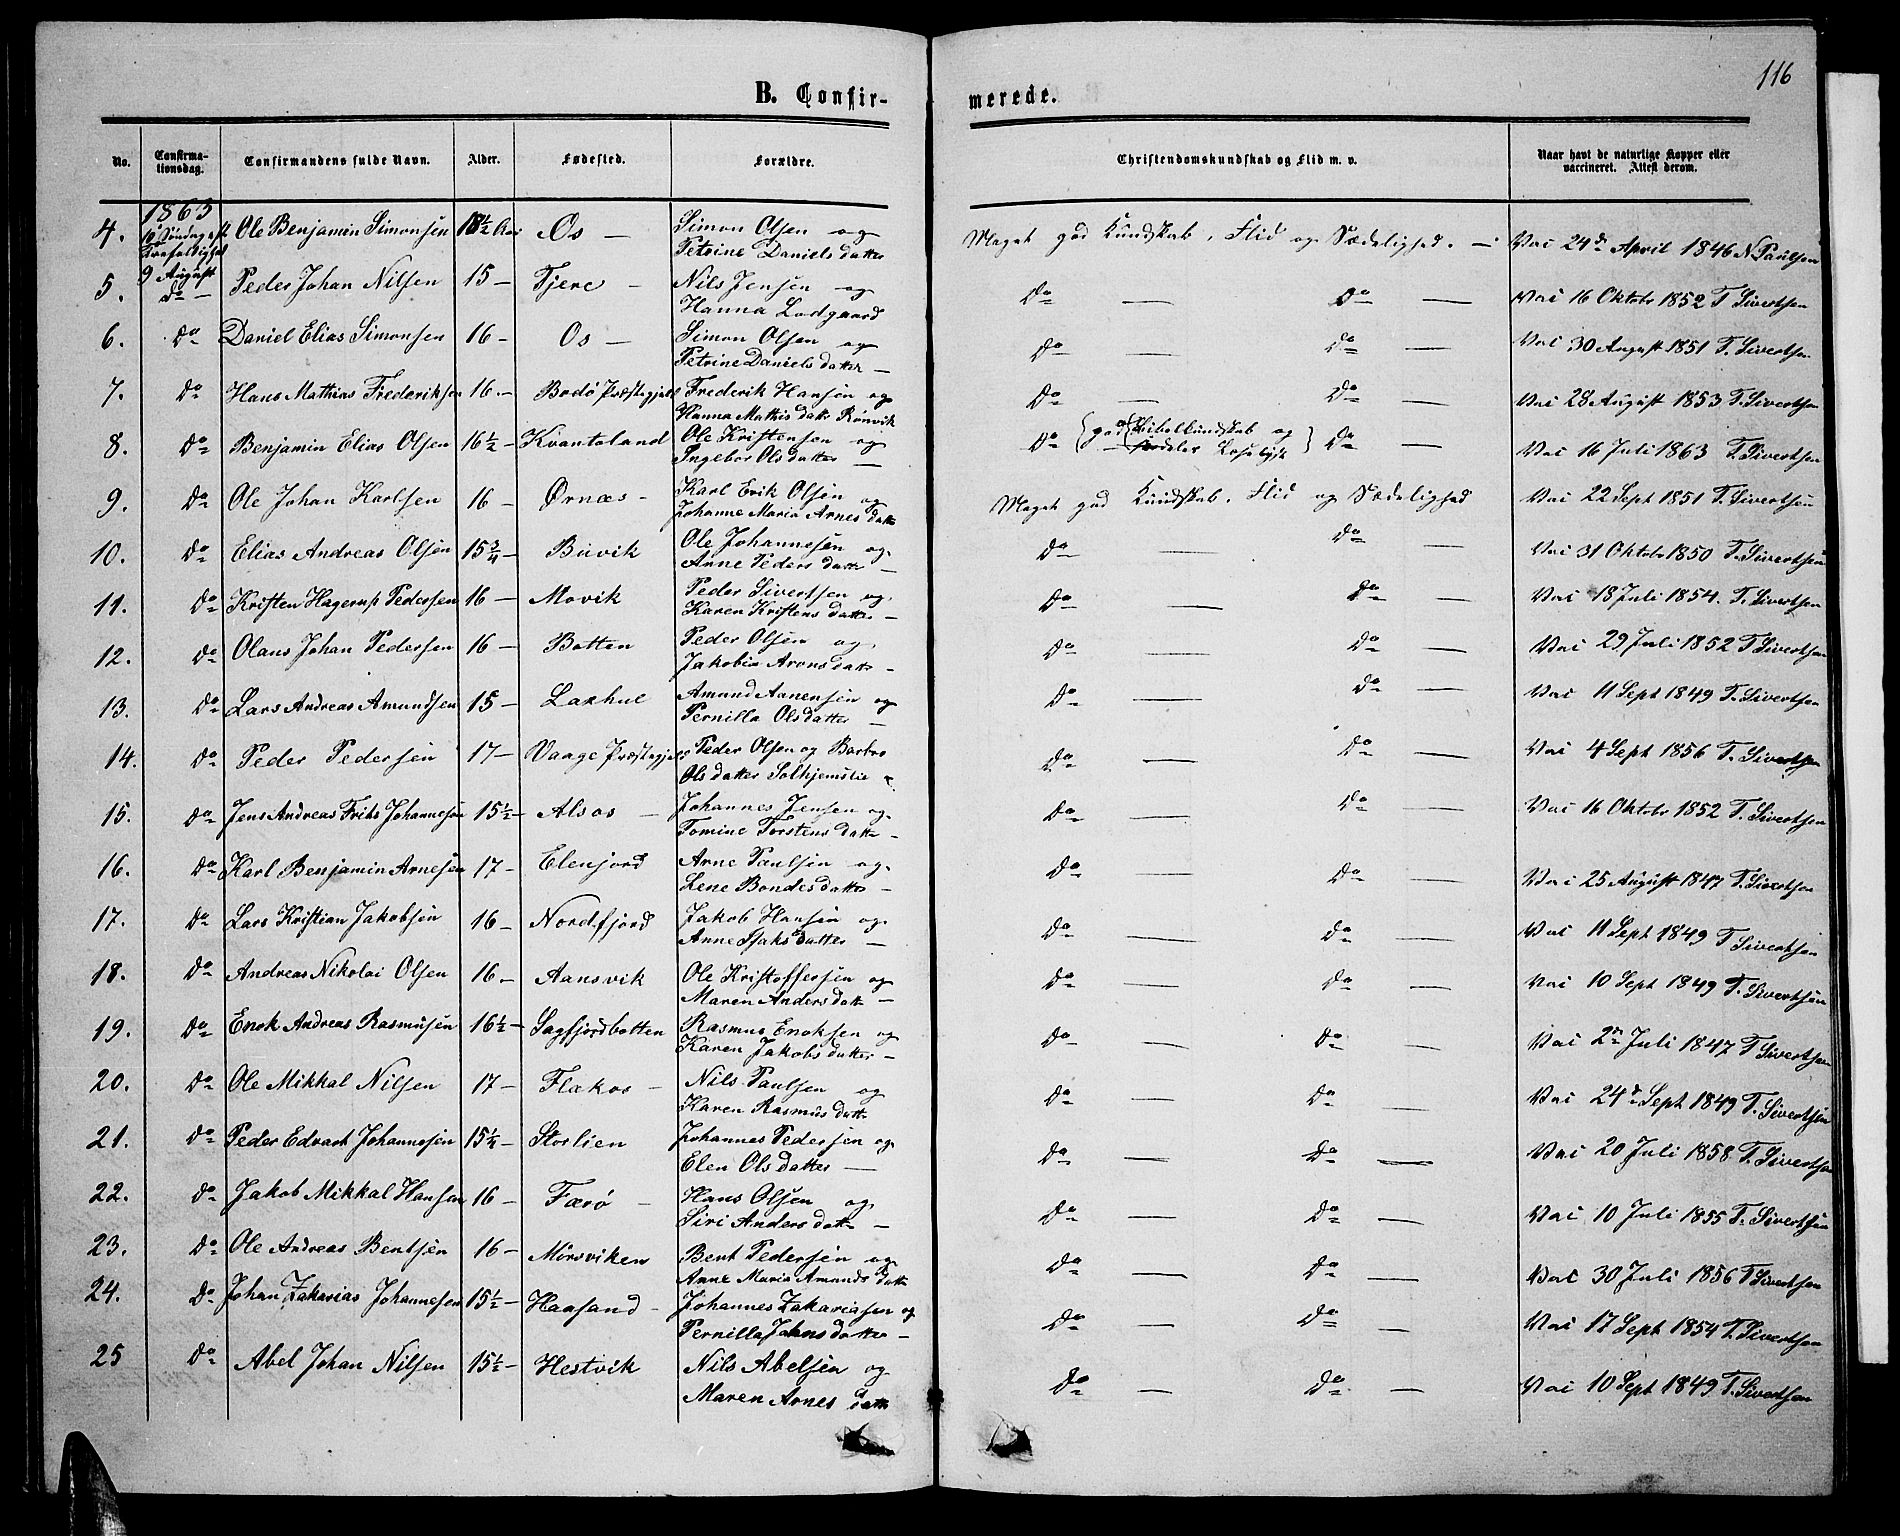 116
B. Confir-
merede.
No.
Confirma-
tionsdag.
Confirmandens fulde Navn.
Alder.
Fødested.
Forældre.
Christendomskundskab og Flid m. v.
Naar havt de naturlige Kopper eller
vaccineret. Attest derom.
1863
10 Søndag eft
Trefoldighed
9 August
4. Ole Benjamin Simonsen 18½ Aar Os — Simon Olsen og
Petrine Danielsdatter
Meget god Kundskab, Flid og Sædelighed. — Vac 24de April 1846 N Paulsen
5. do — Peder Johan Nilsen 15 — Tjere — Nils Jensen og
Hanna Lodgaard
Do — Do — Vac 16 Oktobr 1852 T Sivertsen
6. Do Daniel Elias Simonsen 16 — Os — Simon Olsen og
Petrine Danielsdatter —
Do — Do — Vac 30 August 1851 T. Sivertsen
7. Do Hans Mathias Frederiksen 16. — Bodø Præstegjeld Frederik Hansen og
Hanna Mathisdatter Rønvik
Do — Do — Vac 28 August 1853 T Sivertsen
8. Do Benjamin Elias Olsen 16½ — Kvantoland Ole Kristensen og
Ingebor Olsdatter —
Do { god Bibelkundskab og
} Do — Vac 16 Juli 1863 T. Sivertsen
9. Do Ole Johan Karlsen 16 — Ørnæs — Karl Erik Olsen og
Johanne Maria Arnesdatter
Meget god Kundskab, Flid og Sædelighed Vac 22 Sept 1851 T. Sivertsen
10. Do Elias Andreas Olsen 15¾ — Buvik Ole Johannesen og
Anne Pedersdatter —
Do — Do — Vac 31 Oktobr 1850 T. Sivertsen
11. Do Kristen Hagerup Pedersen 16 — Movik Peder Sivertsen og
Karen Kristensdatter —
Do — Do — Vac 18 Juli 1854. T. Sivertsen
12. Do Olaus Johan Pedersen 16 — Botten Peder Olsen og
Jakobia Aronsdatter —
Do — Do — Vac 29 Juli 1852 T Sivertsen
13. Do Lars Andreas Amundsen 15 — Laxhul Amund Aanensen og
Pernilla Olsdatter —
Do — Do — Vac 11 Sept 1849 T. Sivertsen
14. Do Peder Pedersen 17 — Vaage Præstegjeld Peder Olsen og Barbro
Olsdatter Solhjemslie
Do — Do — Vac 4 Sept 1856 T. Sivertsen
15. Do Jens Andreas Friks Johannesen 15½ — Alsos — Johannes Jensen og
Tomine Torstensdatter —
Do — Do — Vac 16 Oktobr 1852 T. Sivertsen
16. Do Karl Benjamin Arnesen 17 — Elenjord Arne Paulsen og
Lene Bondesdatter —
Do — Do — Vac 25 August 1847 T. Sivertsen
17. Do Lars Kristian Jakobsen 16 — Nordfjord Jakob Hansen og
Anne Isaksdatter —
Do — Do — Vac 11 Sept 1849 T Sivertsen
18. Do Andreas Nikolai Olsen 16 — Aansvik Ole Kristoffersen og
Maren Andersdatter —
Do — Do — Vac 10 Sept 1849 T. Sivertsen
19. Do Enok Andreas Rasmusen 16½ — Sagfjordbotten Rasmus Enoksen og
Karen Jakobsdatter —
Do — Do — Vac 2den Juli 1847 T Sivertsen
20. Do Ole Mikkal Nilsen 17 — Flakos — Nils Paulsen og
Karen Rasmusdatter
Do — Do — Vac 24de Sept 1849 T. Sivertsen
21. Do Peder Edvart Johannesen 15½ — Storlien Johannes Pedersen og
Elen Olsdatter —
Do — Do — Vac 20 Juli 1858 T. Sivertsen
22. Do Jakob Mikkal Hansen 16 — Færø — Hans Olsen og
Siri Andersdatter —
Do — Do — Vac 10 Juli 1855 T. Sivertsen
23. Do Ole Andreas Bentsen 16 — Mørsviken Bent Pedersen og
Anne Maria Amundsdatter
Do — Do — Vac 30 Juli 1856 T Sivertsen
24. Do Johan Zakarias Johannesen 15½ — Haasand — Johannes Zakariasen og
Pernilla Johnsdatter —
Do — Do — Vac 17 Sept 1854 T. Sivertsen
25 Do Abel Johan Nilsen 15½ — Hestvik Nils Abelsen og
Maren Arnesdatter
Do — Do — Vac 10 Sept 1849 T. Sivertsen